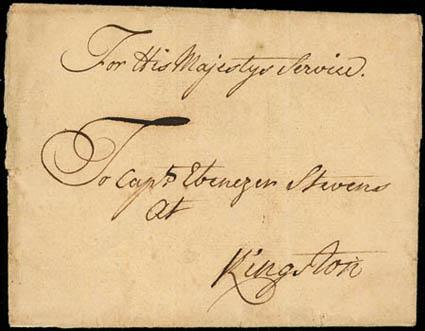 For His Majestys Service.
To Capt. Ebenezer Stevens
At
Kingston